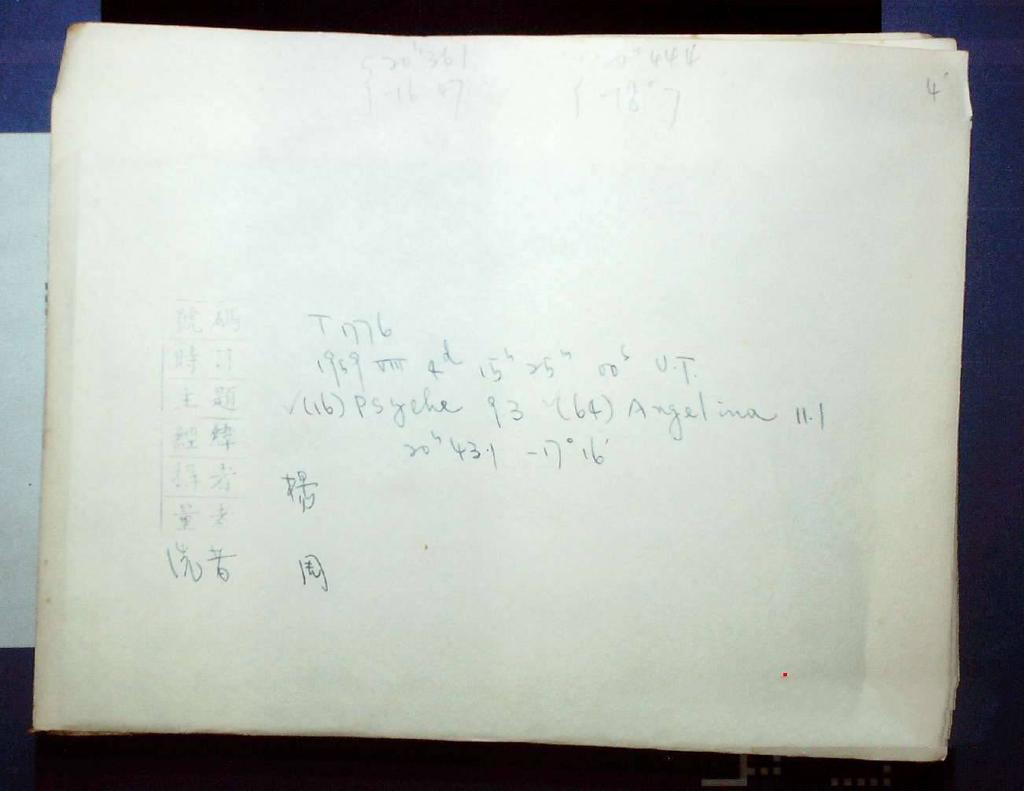 20ʰ361 20ʰ444
-16 47 -18° 7
4
號碼 T 1776
時刻 1959 VIII 4ᵈ 15ʰ 25ᵐ 00ˢ U.T.
主題 √(16) Psyche 9.3 √(64) Angelina 11.1
經緯 20ʰ43.1 -17°16'
者 楊
量者
洗者 周